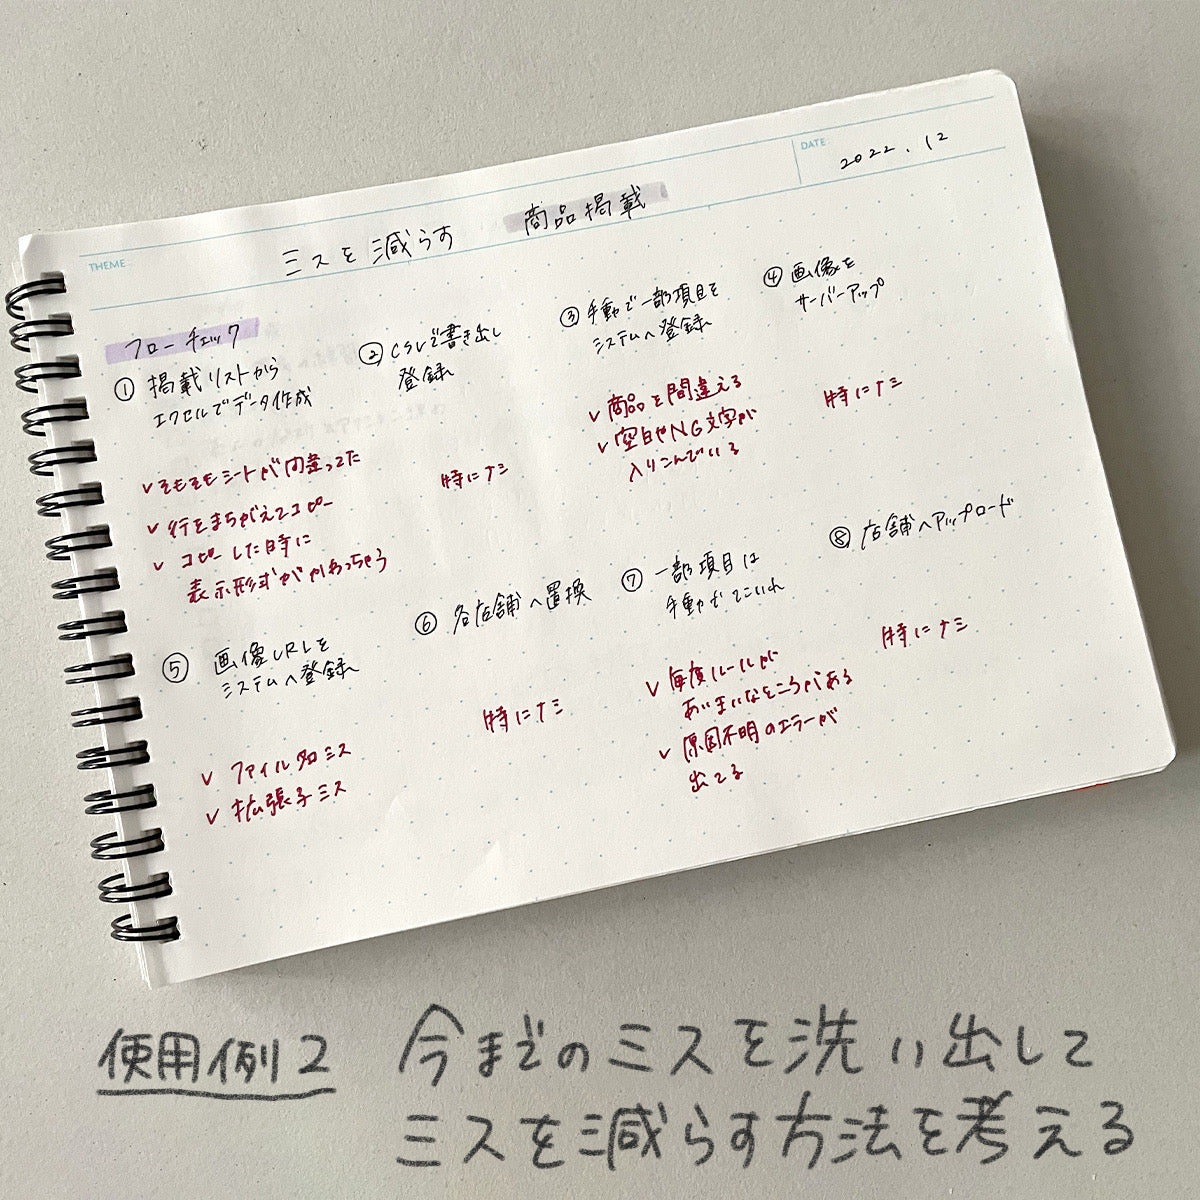 THEME
ミスを減らす 商品掲載
DATE
2022.12
フローチェック
① 掲載リストから
エクセルでデータ作成
✓ そもそもシートが間違ってた
✓ 行をまちがえてコピー
✓ コピーした時に
表示形式がかわっちゃう
② CSVで書き出し
登録
特にナシ
③ 手動で一部項目を
システムへ登録
✓ 商品を間違える
✓ 空白やNG文字が
入りこんでいる
④ 画像を
サーバーアップ
特にナシ
⑤ 画像URLを
システムへ登録
✓ ファイル名ミス
✓ 拡張子ミス
⑥ 各店舗へ置換
特にナシ
⑦ 一部項目は
手動でてこいれ
✓ 毎度ルールが
あいまいなところがある
✓ 原因不明のエラーが
出てる
⑧ 店舗へアップロード
特にナシ
使用例2
今までのミスを洗い出して
ミスを減らす方法を考える